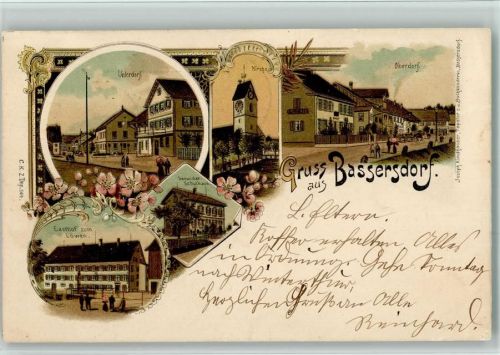 Unterdorf
Kirche
Oberdorf
Gruss
aus Bassersdorf.
Secundar
Schulhaus
Gasthof zum
Löwen.
C.K.Z. Dep.
L. Eltern.
Koffer erhalten, Alles
in Ordnung. Gehe Sonntag
nach Winterthur,
herzlichen Gruß an Alle
Reinhard.